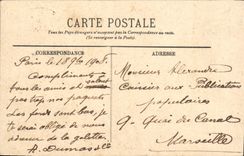 CARTE POSTALE
Tous les pays étrangers n'acceptent pas la Correspondance au recto.
(Se renseigner à la Poste)
CORRESPONDANCE
ADRESSE
Paris le 18 9bre 1905
Compliments à
tous les amis et
pas trop
les fonds sont bas, je
te serai obligé de nous
de la galette
A. Dumas
Monsieur Alexandre
Caissier aux Publications
populaires
9 - Quai du Canal
Marseille